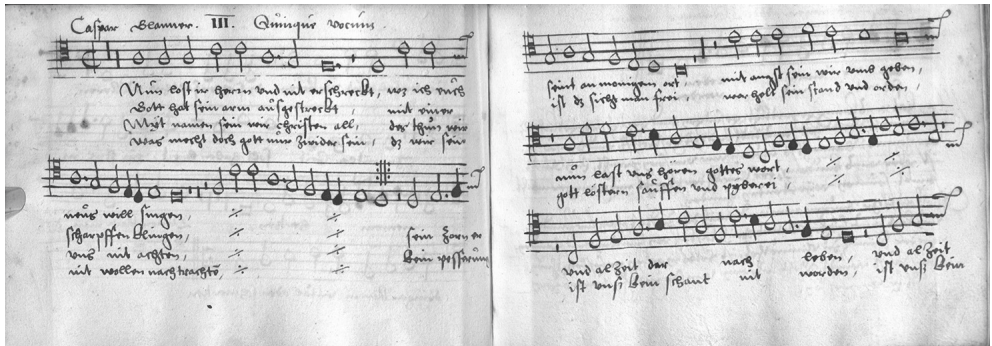 Caspar Glanner. III. Quinque vocum.
Nun lost ir herrn und nit erschreckt, waz ich euch
Gott hat sein arm außgestreckt, mit einer
Mit namen sein wir christen all, das thun wir
was mecht doch gott nur zwider sein, dz wir sein
neus will singen,
scharpffen klingen,
uns nit achten, sein zorn er
nit wollen nachtrachtn, kein pesserung
seint an menigen ort, mit angst sein wir umb geben,
ist dz sicht man frei, war holt sein stand und orden,
nun last uns hören gottes wort,
gott lestern sauffen und
und al zeit dar nach leben, und al zeit
ist unß kein schant nit worden, ist unß kein